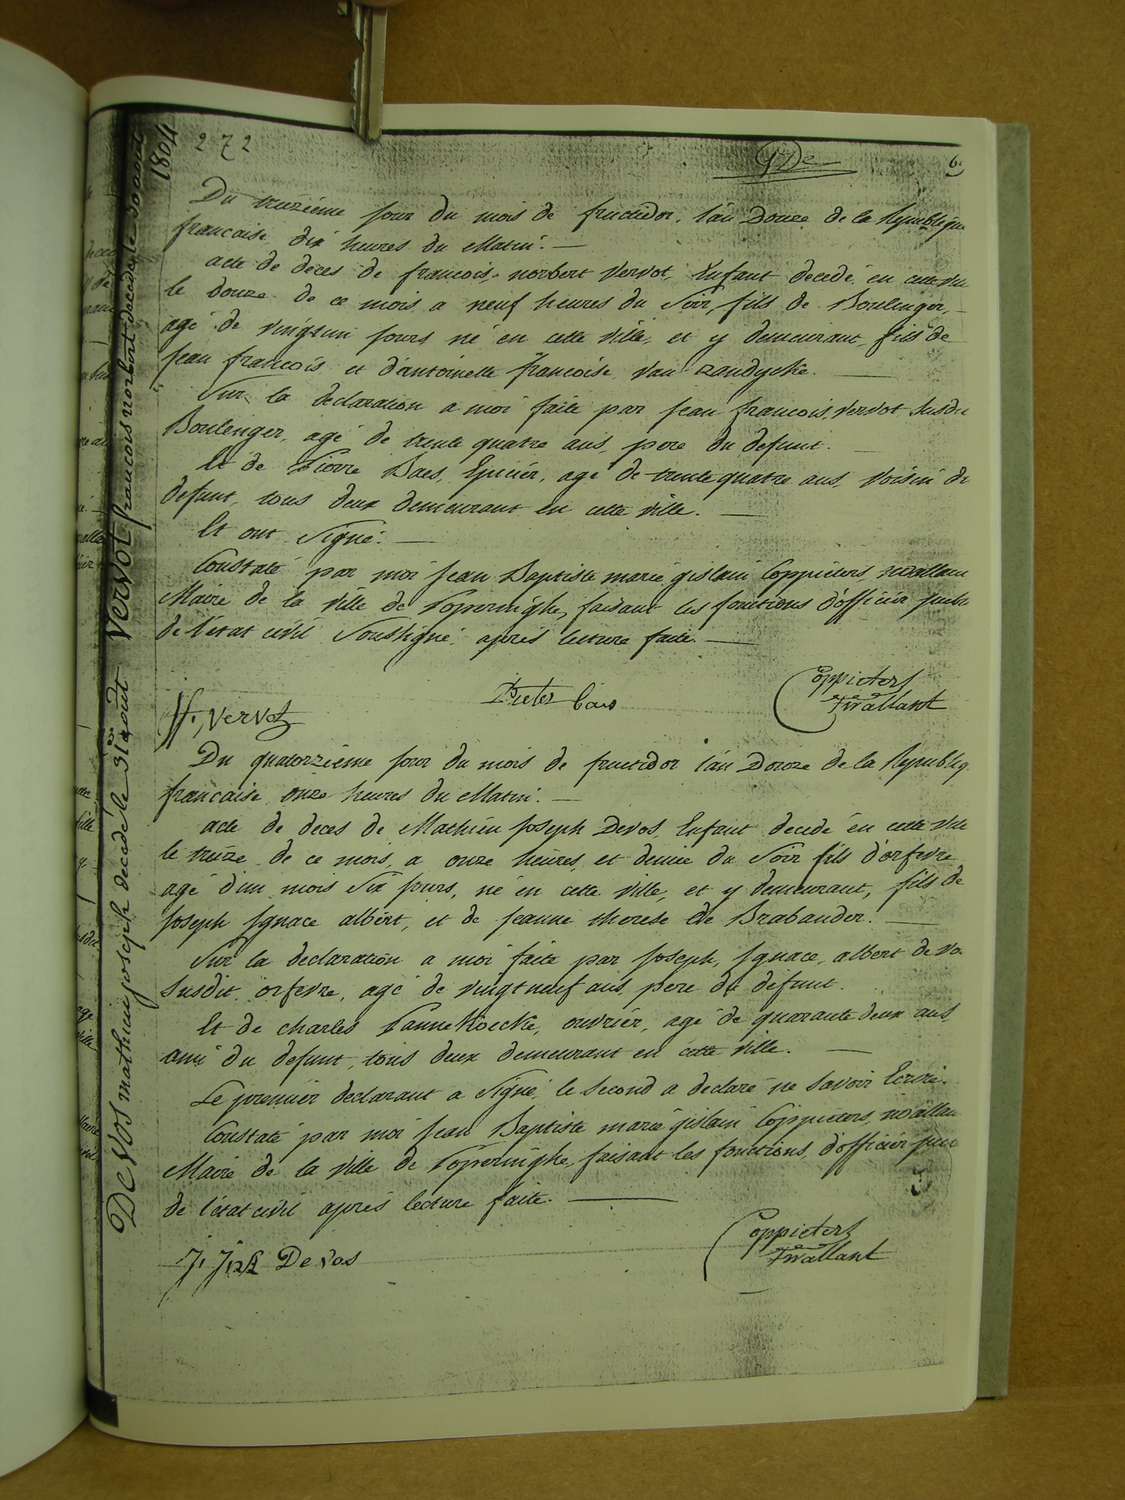 272
1804
6.
Du treizième jour du mois de fructidor, l'an Douze de la Republique
francaise dix heures du Matin. —
acte de deces de francois norbert Vervot, Enfant decedé en cette vil
le douze de ce mois a neuf heures du Soir, fils de Boulinger,
agé de vingtun jours né en cette ville, et y demeurant fils de
jean francois et d'antoinette francoise Van Zandycke. —
Sur la declaration a moi faite par jean francois Vervot Susdit
Boulenger, agé de trente quatre ans, pere du defunt. —
Et de Pierre Baes, Epicier, agé de trente quatre ans, Voisin de
defunt, tous deux demeurant en cette ville. —
Et ont Signé. —
Constaté par moi jean Baptiste marie gislain Coppieters,
Maire de la ville de Poperinghe, faisant les fonctions d'officier publi
de l'état civil Soussigné après lecture faite. —
Vervot
Pieter baes
Coppieters
Du quatorzième jour du mois de fructidor l'an Douze de la Republiq.
francaise onze heures du Matin. —
acte de deces de Mathieu joseph Devos, Enfant decedé en cette ville
le treize de ce mois, a onze heures et demie du Soir fils d'orfevre
agé d'un mois Six jours, né en cette ville, et y demeurant, fils de
joseph jgnace albert, et de jeanne therese de Brabander. —
Sur la declaration a moi faite par joseph, jgnace, albert de vo
Susdit, orfevre, agé de vingt neuf ans, pere du défunt.
Et de charles Vannekoecke, ouvrier, agé de quarante deux ans,
ami du defunt, tous deux demeurant en cette ville. —
Le premier declarant a Signé, le second a declaré ne savoir Ecrire.
Constaté par moi jean Baptiste marie gislain Coppieters,
Maire de la ville de Poperinghe, faisant les fonctions, d'officier pub
de l'état civil après lecture faite. —
De vos
Coppieters
Vervot francois norbert decedé le 30 aout
De Vos mathieu joseph decedé le 31 aout